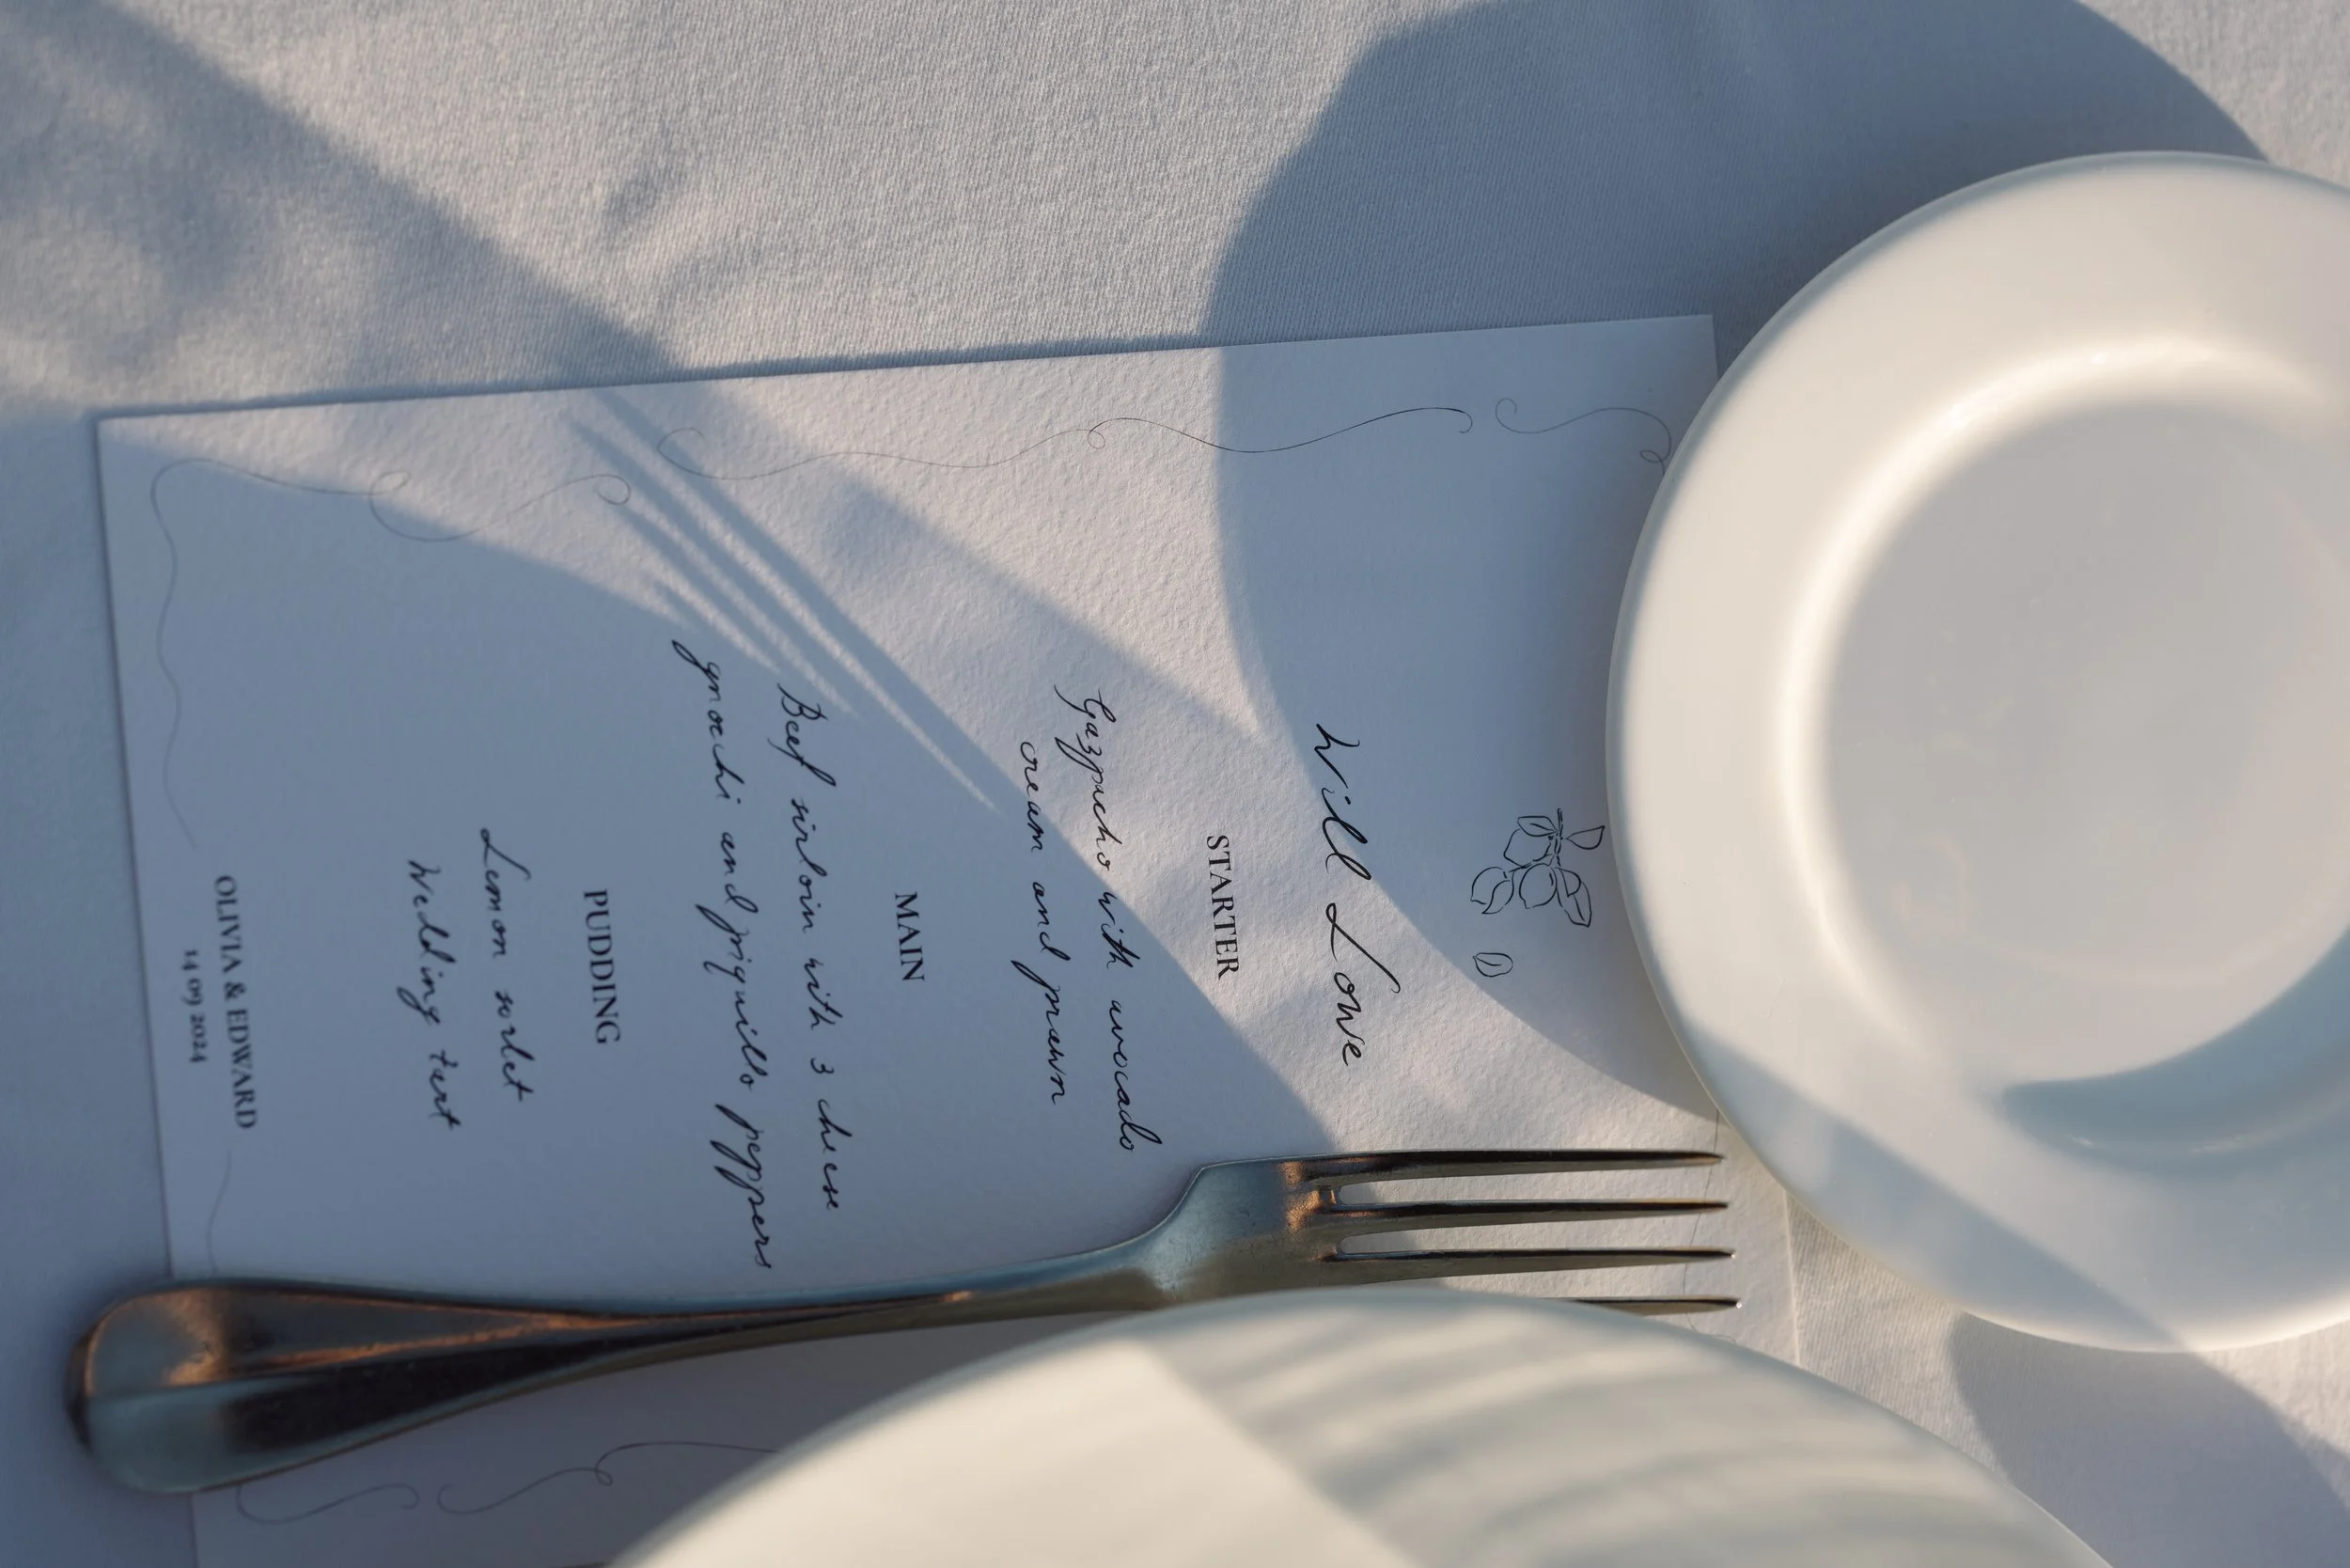 Will Lowe
STARTER
Gazpacho with avocado
cream and prawn
MAIN
Beef sirloin with 3 cheese
gnocchi and piquillo peppers
PUDDING
Lemon sorbet
Wedding tart
OLIVIA & EDWARD
14 09 2024